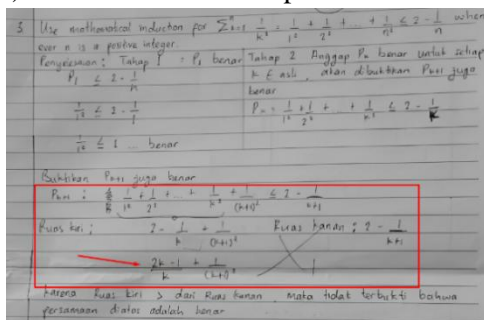 3 Use mathematical induction for ∑ 1/k² = 1/1² + 1/2² + ... + 1/n² ≤ 2 - 1/n when
ever n is a positive integer.
Penyelesaian: Tahap 1 = P₁ benar
P₁ ≤ 2 - 1/n
1/1² ≤ 2 - 1/1
1/1² ≤ 1 ... benar
Tahap 2 Anggap Pₙ benar untuk setiap
k ∈ asli, akan dibuktikan Pₖ₊₁ juga
benar
Pₙ = 1/1² + 1/2² + ... + 1/k² ≤ 2 - 1/k
Buktikan Pₖ₊₁ juga benar
Pₖ₊₁ : 1/1² + 1/2² + ... + 1/k² + 1/(k+1)² ≤ 2 - 1/(k+1)
Ruas kiri : 2 - 1/k + 1/(k+1)² Ruas kanan : 2 - 1/(k+1)
(2k-1)/k + 1/(k+1)²
karena Ruas kiri > dari Ruas kanan, maka tidak terbukti bahwa
persamaan diatas adalah benar